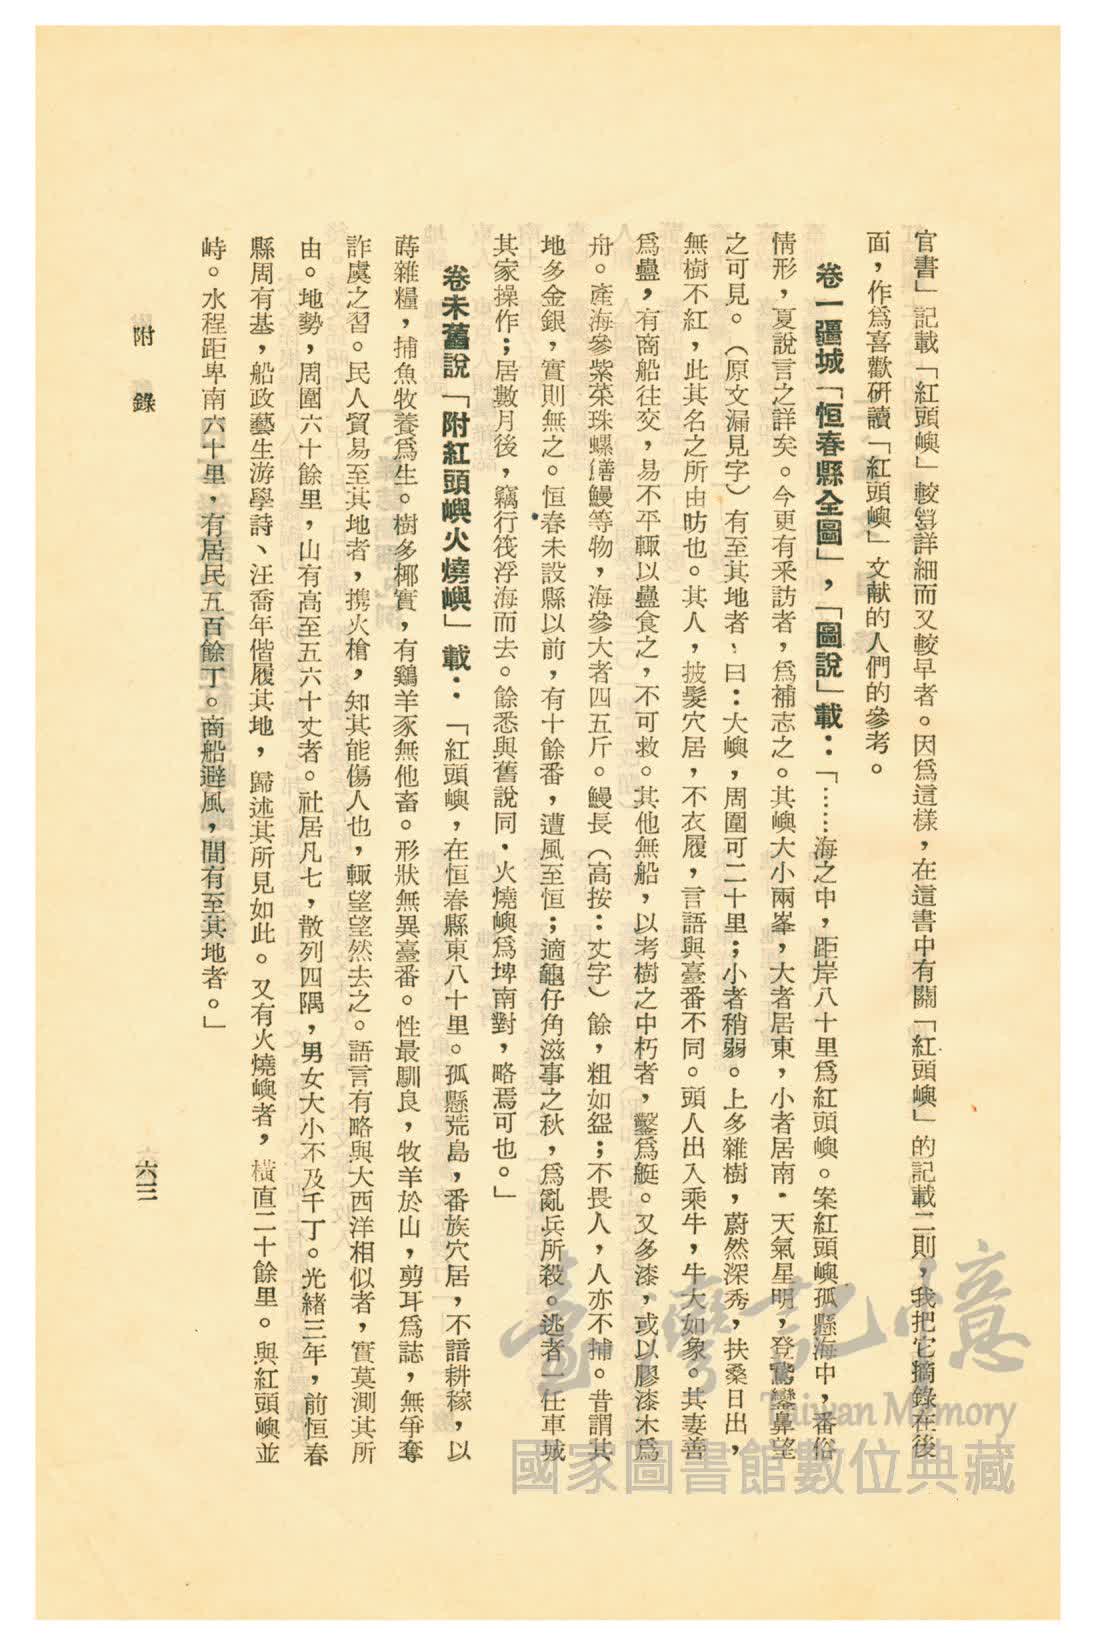 官書」記載「紅頭嶼」較詳細而又較早者。因爲這樣，在這書中有關「紅頭嶼」的記載二則，我把它摘錄在後
面，作爲喜歡研讀「紅頭嶼」文献的人們的參考。
卷一疆城「恒春縣全圖」，「圖說」載：「……海之中，距岸八十里爲紅頭嶼。案紅頭嶼孤懸海中，番俗
情形，夏說言之詳矣。今更有釆訪者，爲補志之。其嶼大小兩峯，大者居東，小者居南．天氣星明，登鵞鑾鼻望
之可見。（原文漏見字）有至其地者、曰：大嶼，周圍可二十里；小者稍弱。上多雜樹，蔚然深秀，扶桑日出，
無樹不紅，此其名之所由昉也。其人，披髮穴居，不衣履，言語與臺番不同。頭人出入乘牛，牛大如象。其妻善
爲蠱，有商船往交，易不平輙以蠱食之，不可救。其他無船，以考樹之中朽者，鑿爲艇。又多漆，或以膠漆木爲
舟。產海參紫菜珠螺鱔鰻等物，海參大者四五斤。鰻長（高按：丈字）餘，粗如盌；不畏人，人亦不捕。昔謂其
地多金銀，實則無之。恒春未設縣以前，有十餘番，遭風至恒；適龜仔角滋事之秋，爲亂兵所殺。逃者一任車城
其家操作；居數月後，竊行筏浮海而去。餘悉與舊說同．火燒嶼爲埤南對，略焉可也。」
卷末舊說「附紅頭嶼火燒嶼」載：「紅頭嶼，在恒春縣東八十里。孤懸荒島，番族穴居，不諳耕稼，以
蒔雜糧，捕魚牧養爲生。樹多椰實，有鷄羊豕無他畜。形狀無異臺番。性最馴良，牧羊於山，剪耳爲誌，無爭奪
詐虞之習。民人貿易至其地者，携火槍，知其能傷人也，輙望望然去之。語言有略與大西洋相似者，實莫測其所
由。地勢，周圍六十餘里，山有高至五六十丈者。社居凡七，散列四隅，男女大小不及千丁。光緒三年，前恒春
縣周有基，船政藝生游學詩、汪喬年偕履其地，歸述其所見如此。又有火燒嶼者，橫直二十餘里。與紅頭嶼並
峙。水程距卑南六十里，有居民五百餘丁。商船避風，間有至其地者。」
附 錄
六三
臺灣記憶
Taiwan Memory
國家圖書館數位典藏